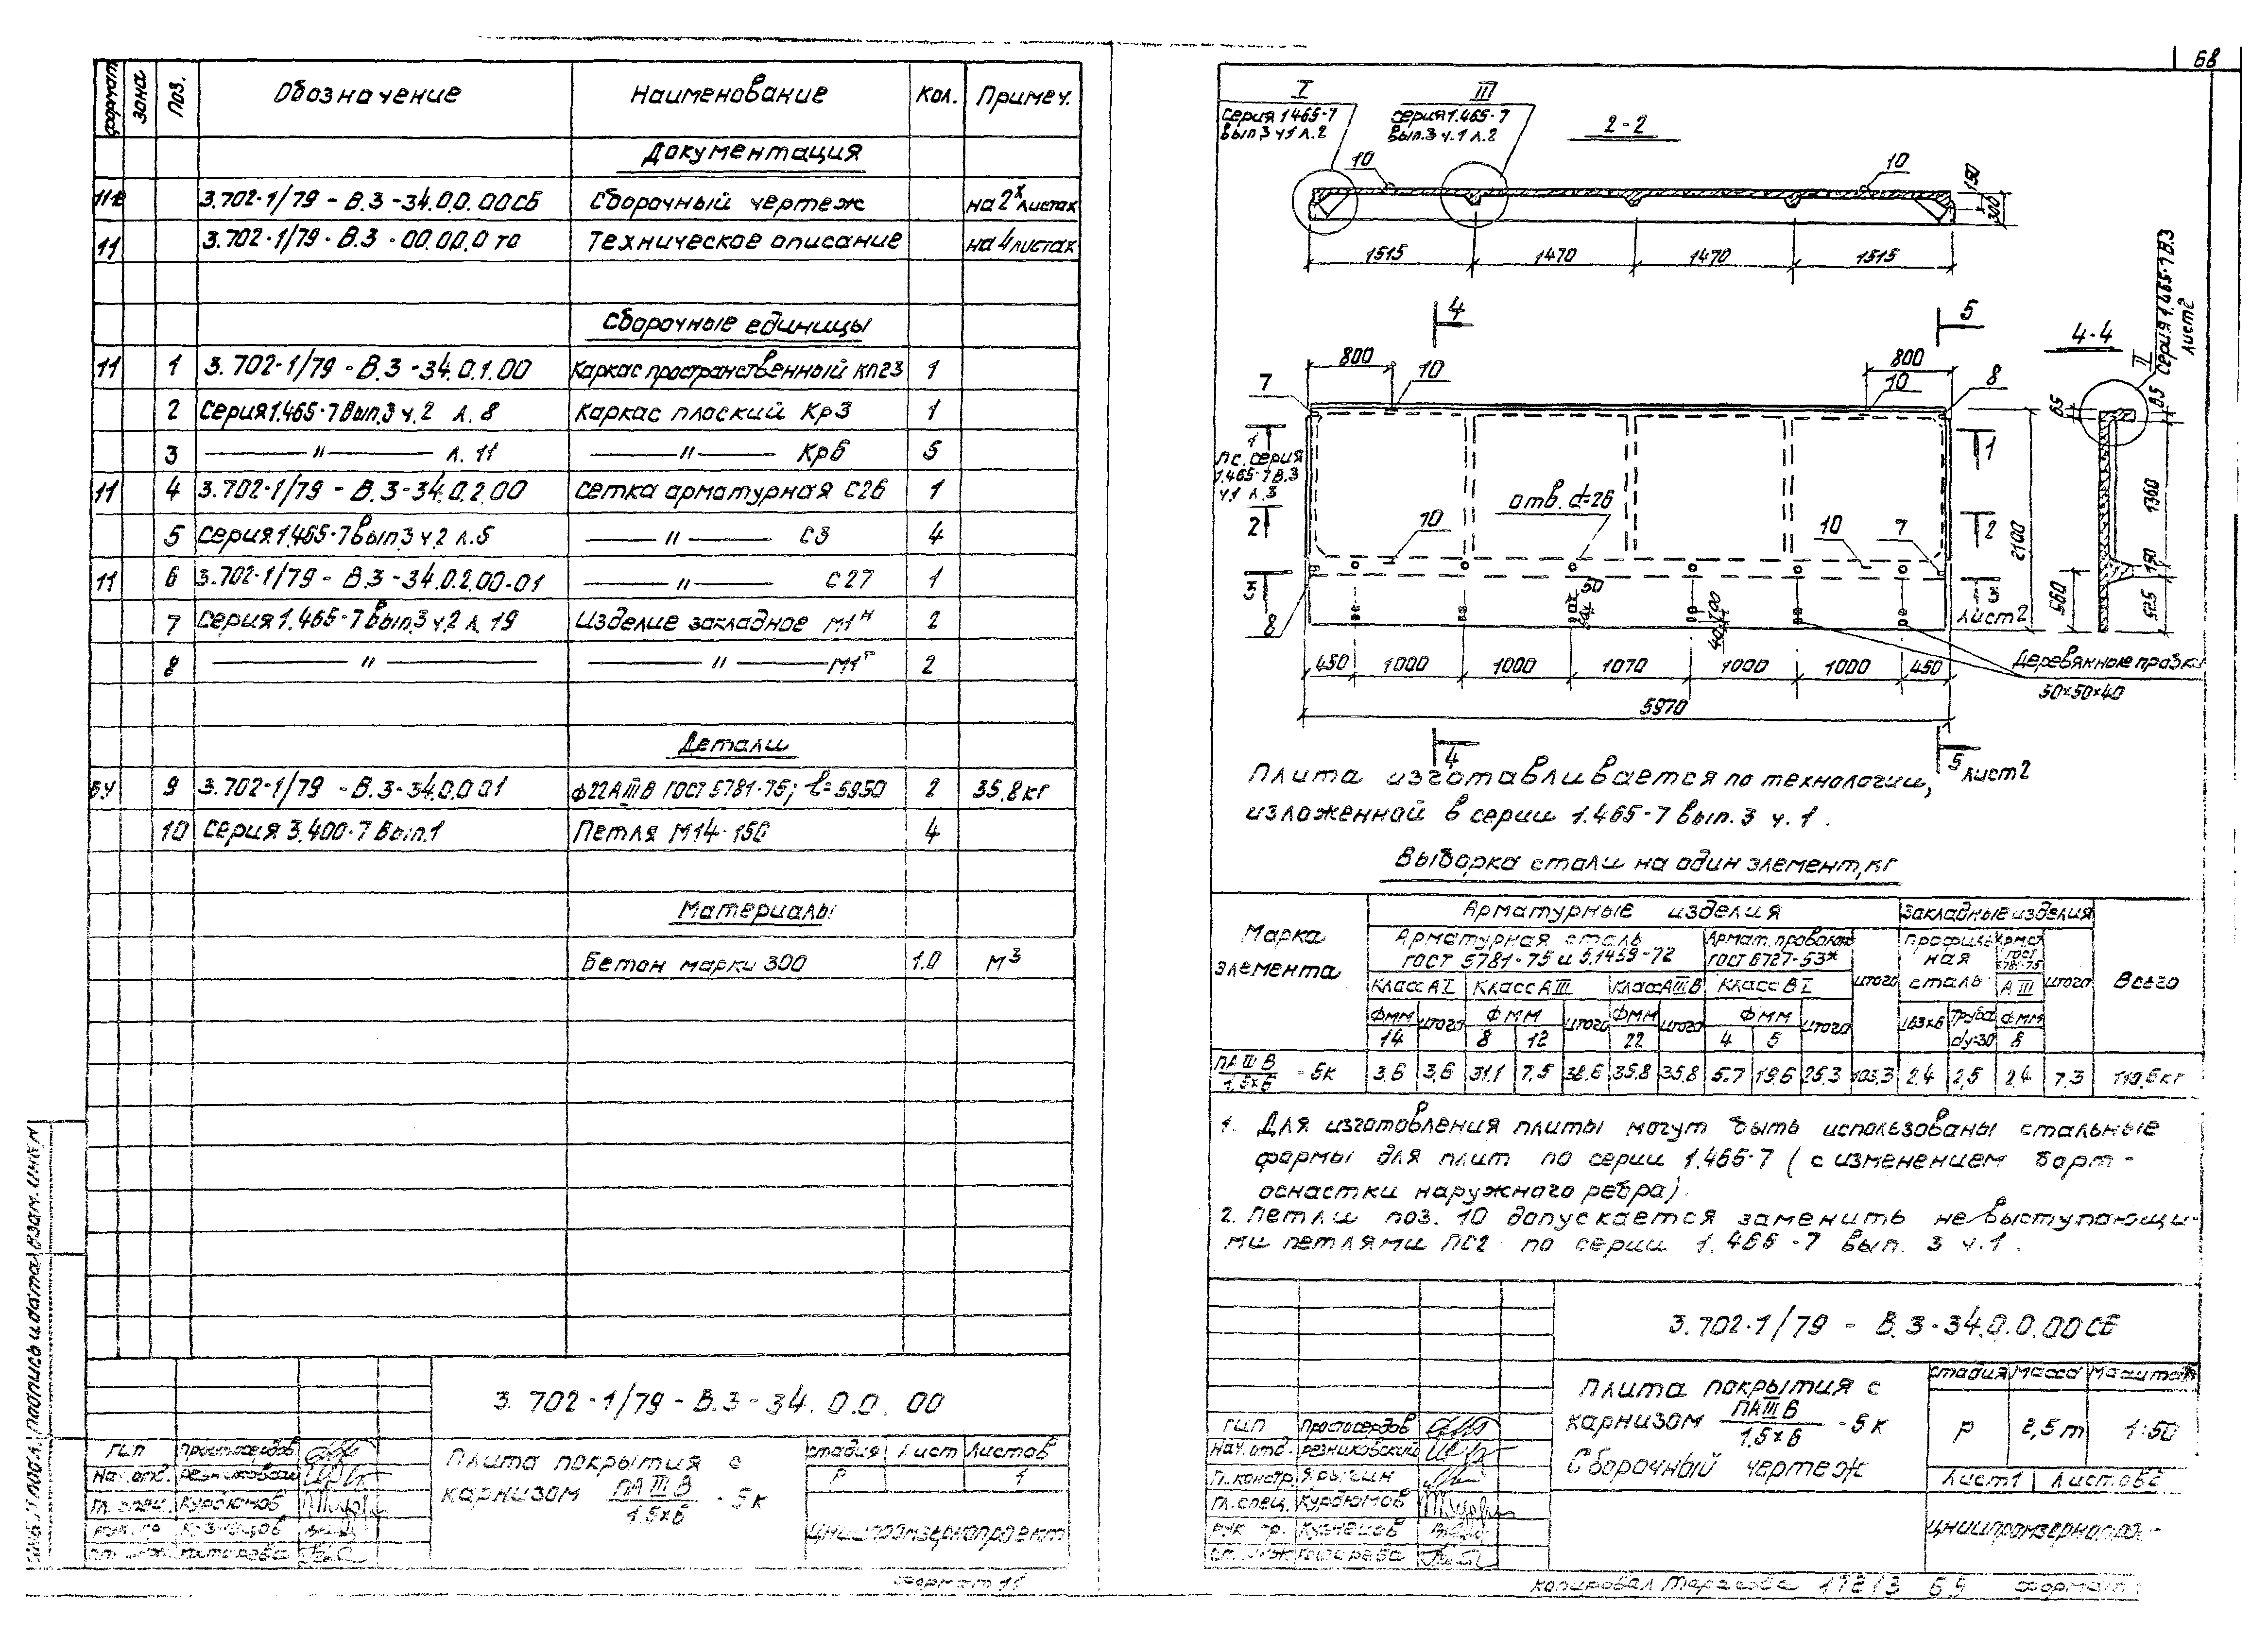 формат зона поз. Обозначение Наименование Кол. Примеч.
Документация
3.702-1/79 - В.3 - 34.0.0.00СБ Сборочный чертеж на 2х листах
11 3.702-1/79 - В.3 - 00.00.0 то Техническое описание на 4 листах
Сборочные единицы
11 1 3.702-1/79 - В.3 - 34.0.1.00 Каркас пространственный КП23 1
2 Серия 1.465-7 Вып.3 ч.2 л.8 Каркас плоский Кр3 1
3 —— " —— л.11 —— " —— Кр6 5
11 4 3.702-1/79 - В.3 - 34.0.2.00 Сетка арматурная С26 1
5 Серия 1.465-7 вып.3 ч.2 л.5 —— " —— С3 4
11 6 3.702-1/79 - В.3 - 34.0.2.00-01 —— " —— С27 1
7 Серия 1.465-7 Вып.3 ч.2 л.19 Изделие закладное М1н 2
8 —— " —— —— " —— М1т 2
Детали
БЧ 9 3.702-1/79 - В.3 - 34.0.0.01 ф22АIIIВ ГОСТ 5781-75; ℓ=5950 2 35.8кг
10 Серия 3.400-7 Вып.1 Петля М14-150 4
Материалы
Бетон марки 300 1.0 м3
3.702-1/79 - В.3 - 34.0.0.00
ГИП Простосердов
Нач.отд. Резниковский
Гл. спец. Курдюмов
Рук. гр. Кузнецов
Ст. инж.
Плита покрытия с
карнизом ПАIIIВ/1,5х6 - 5к
стадия Лист Листов
Р 1
ЦНИИпромзернопроект
Формат 11
Подпись и дата Взам. инв. №
68
I III
Серия 1.465-7 Вып.3 ч.1 л.2
серия 1.465-7 Вып.3 ч.1 л.2
2-2
10 10
150 300
1515 1470 1470 1515
4 5
4-4
II Серия 1.465-7 В.3 лист 2
800 10 800 10
7 8
65 65
1 1
Пс. серия
1.465-7 В.3
ч.1 л.3
отв. d=26
2 10 10 7 2
2100 1360 150 525 560
3 3
лист 2
8
50 40 100
450 1000 1000 1070 1000 1000 450
5970
Деревянные пробки
50×50×40
4 5 лист 2
Плита изготавливается по технологии,
изложенной в серии 1.465-7 вып. 3 ч. 1.
Выборка стали на один элемент, кг
Марка элемента Арматурные изделия Закладные изделия Всего
Арматурная сталь ГОСТ 5781-75 и 5.1459-72 Армат. проволока ГОСТ 6727-53* итого Профильная сталь ГОСТ 5781-75 итого
Класс АI Класс АIII Класс АIIIВ Класс ВI АIII
Фмм итого Фмм итого Фмм итого Фмм итого L63х6 Труба dу=30 Фмм
14 8 12 22 4 5 8
ПАIIIВ/1,5х6 - 5к 3,6 3,6 31,1 7,5 38,6 35,8 35,8 5.7 19,6 25,3 103,3 2,4 2,5 2,4 7.3 110,6кг
1. Для изготовления плиты могут быть использованы стальные
формы для плит по серии 1.465-7 (с изменением борт-
оснастки наружного ребра).
2. Петли поз. 10 допускается заменить невыступающи-
ми петлями ПС2 по серии 1.465-7 вып. 3 ч.1.
3.702-1/79 - В.3 - 34.0.0.00СБ
ГИП Простосердов
Нач.отд. Резниковский
Гл.констр. Ярыгин
Гл.спец. Курдюмов
Рук. гр. Кузнецов
Ст. инж.
Плита покрытия с
карнизом ПАIIIВ/1,5х6 - 5к
Сборочный чертеж
стадия Масса Масштаб
Р 2,5т 1:50
Лист 1 Листов 2
Копировал Тарасова